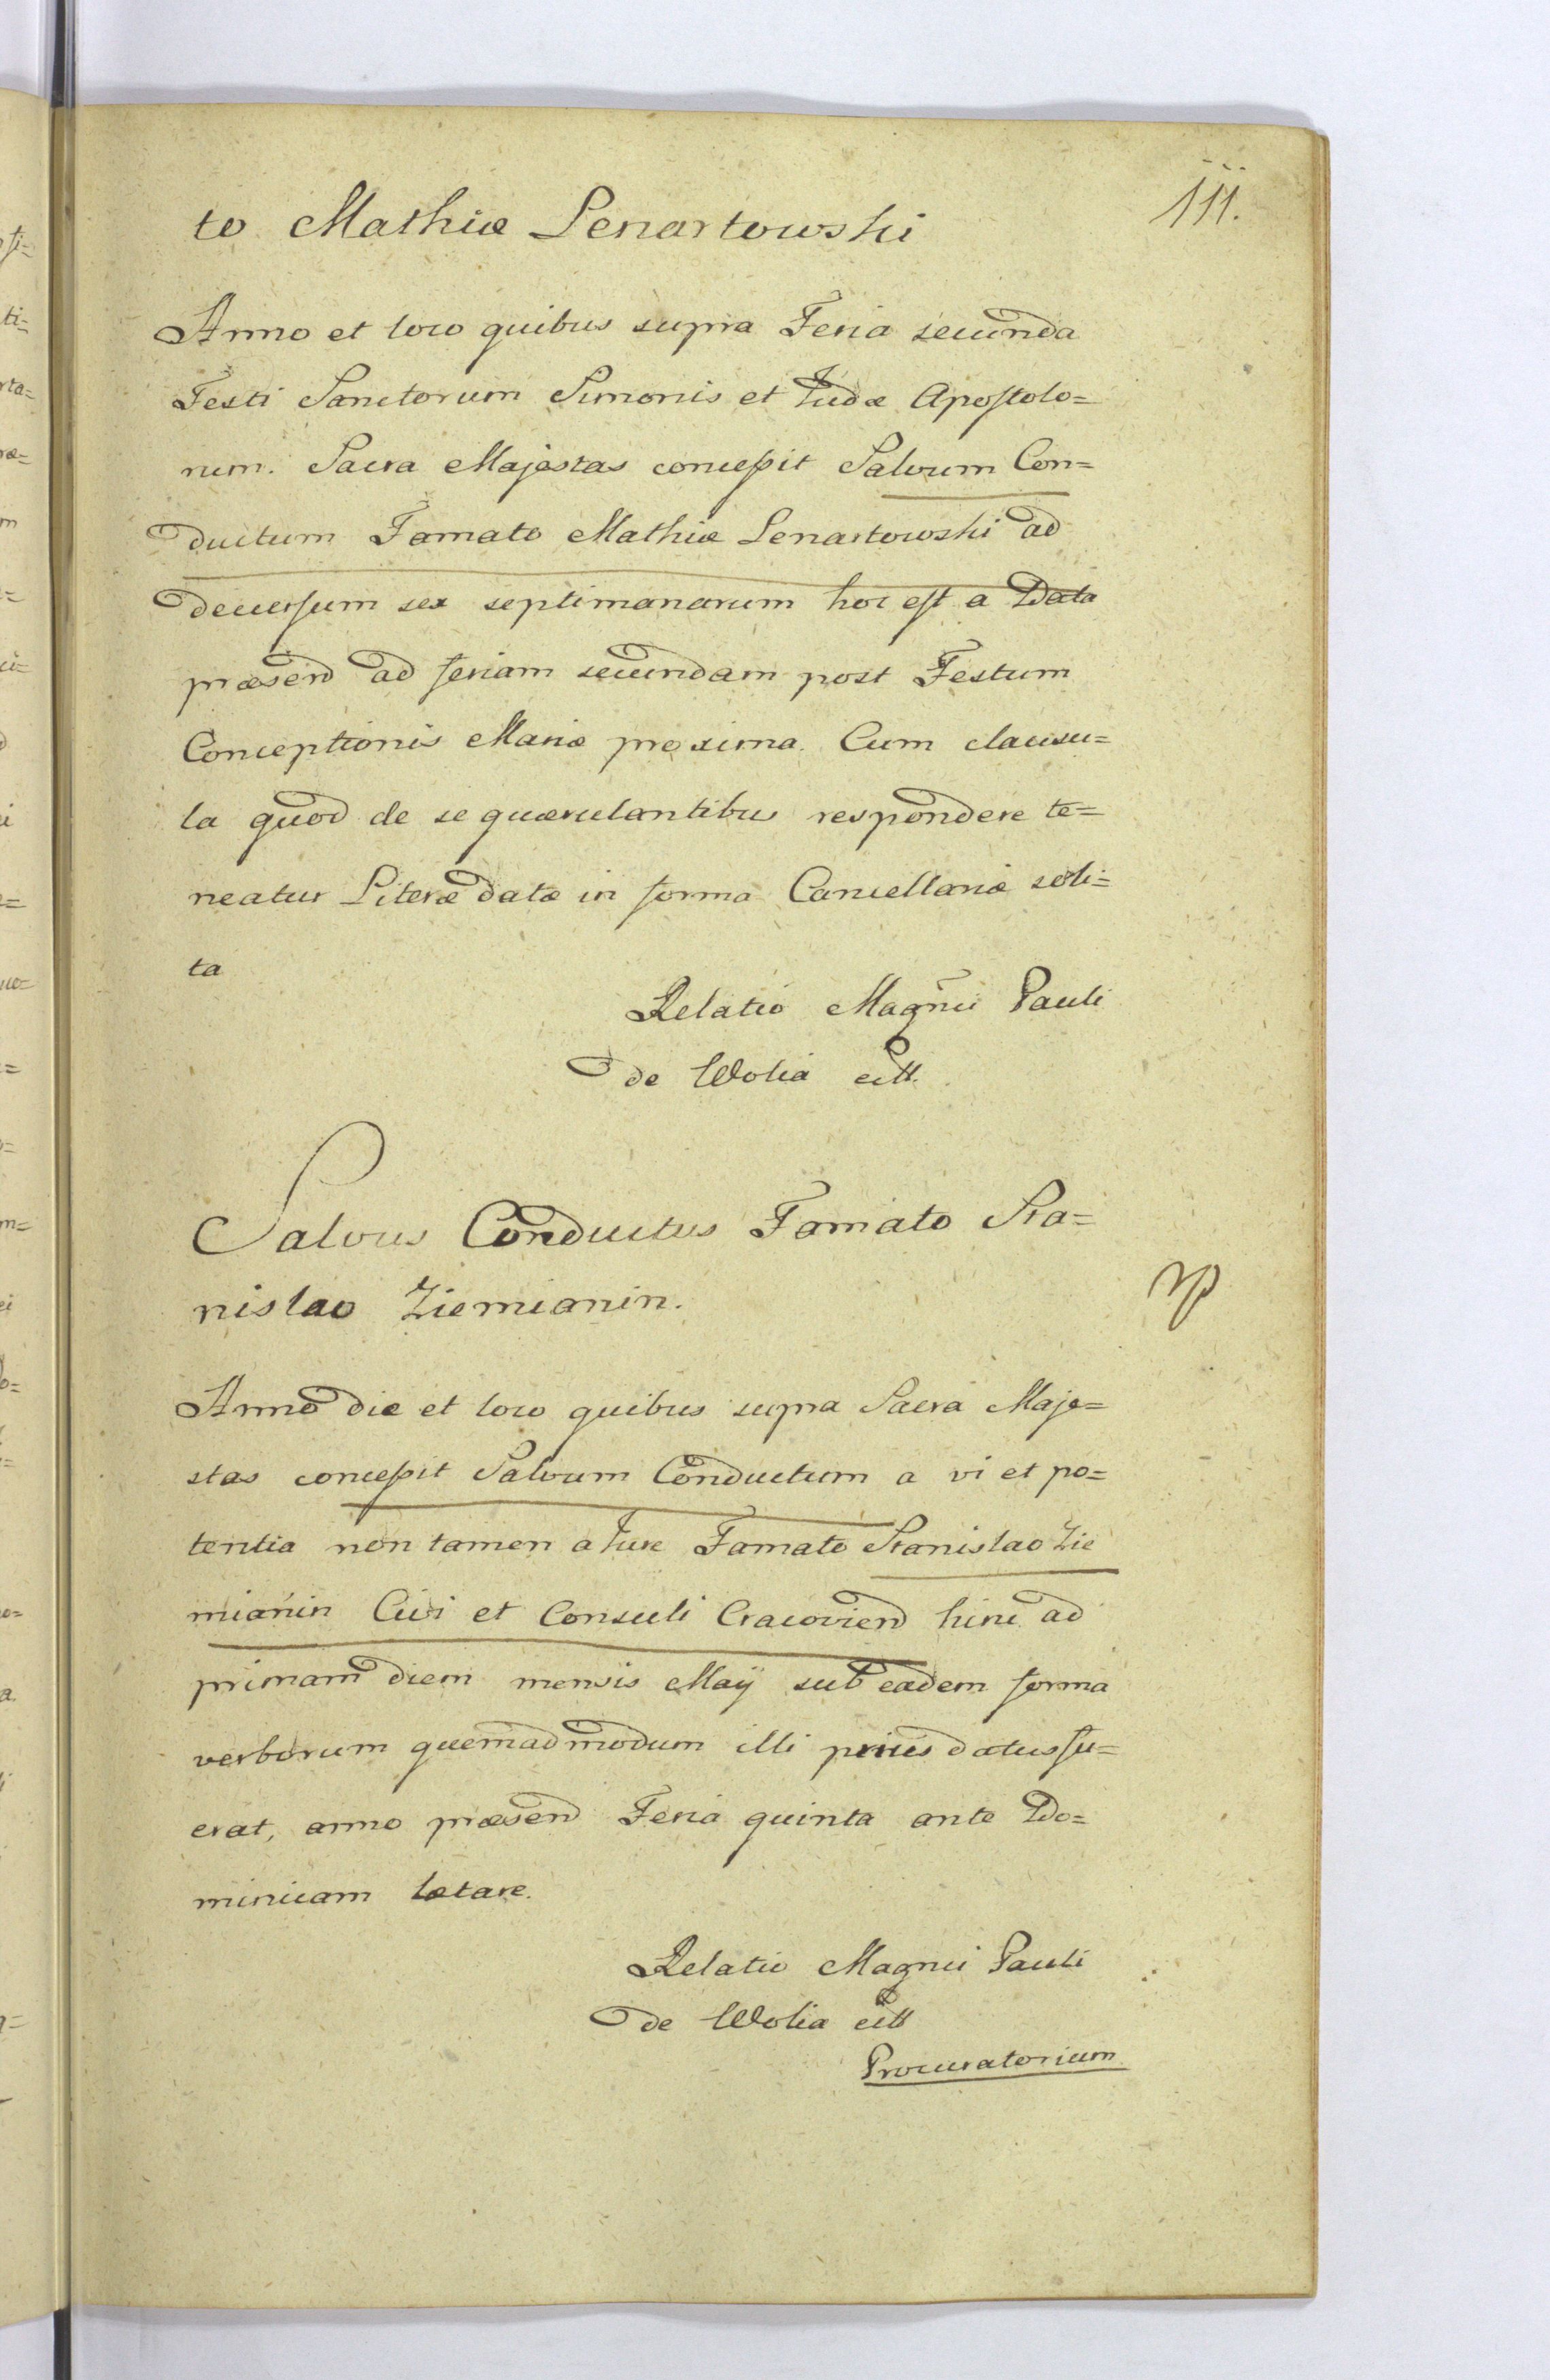 111.
to Mathiæ Lenartowski
Anno et loco quibus supra Feria secunda
Festi Sanctorum Simonis et Judæ Apostolo=
rum. Sacra Majestas concessit Salvum Con=
ductum Famato Mathiæ Lenartowski ad
decursum sex septimanarum hoc est a Data
præsend ad feriam secundam post Festum
Conceptionis Mariæ proxima. Cum clausu=
la quod de se quærulantibus respondere te=
neatur Literæ datæ in forma Cancellariæ soli=
ta
Relatio Magnii Pauli
de Wolia ectt.
Salvus Conductus Famato Sta=
nislao Ziemianin.
Anno die et loco quibus supra Sacra Maje=
stas concessit Salvum Conductum a vi et po=
tentia non tamen a Jure Famato Stanislao Zie
mianin Civi et Consuli Cracoviend hinc ad
primam diem mensis Maÿ sub eadem forma
verborum quemadmodum illi prius datus fu=
erat, anno præsend Feria quinta ante Do=
minicam lætare.
Relatio Magnii Pauli
de Wolia ectt
Procuratorium